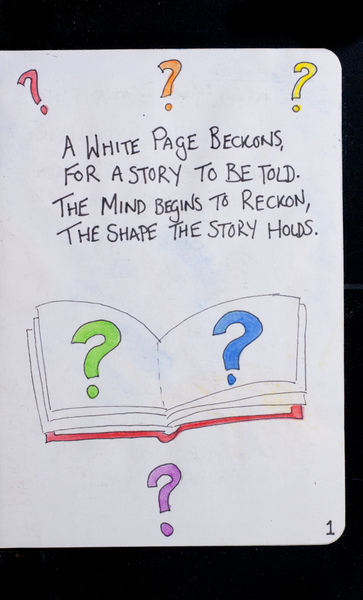 ? ? ?
A WHITE PAGE BECKONS,
FOR A STORY TO BE TOLD.
THE MIND BEGINS TO RECKON,
THE SHAPE THE STORY HOLDS.
? ?
?
1